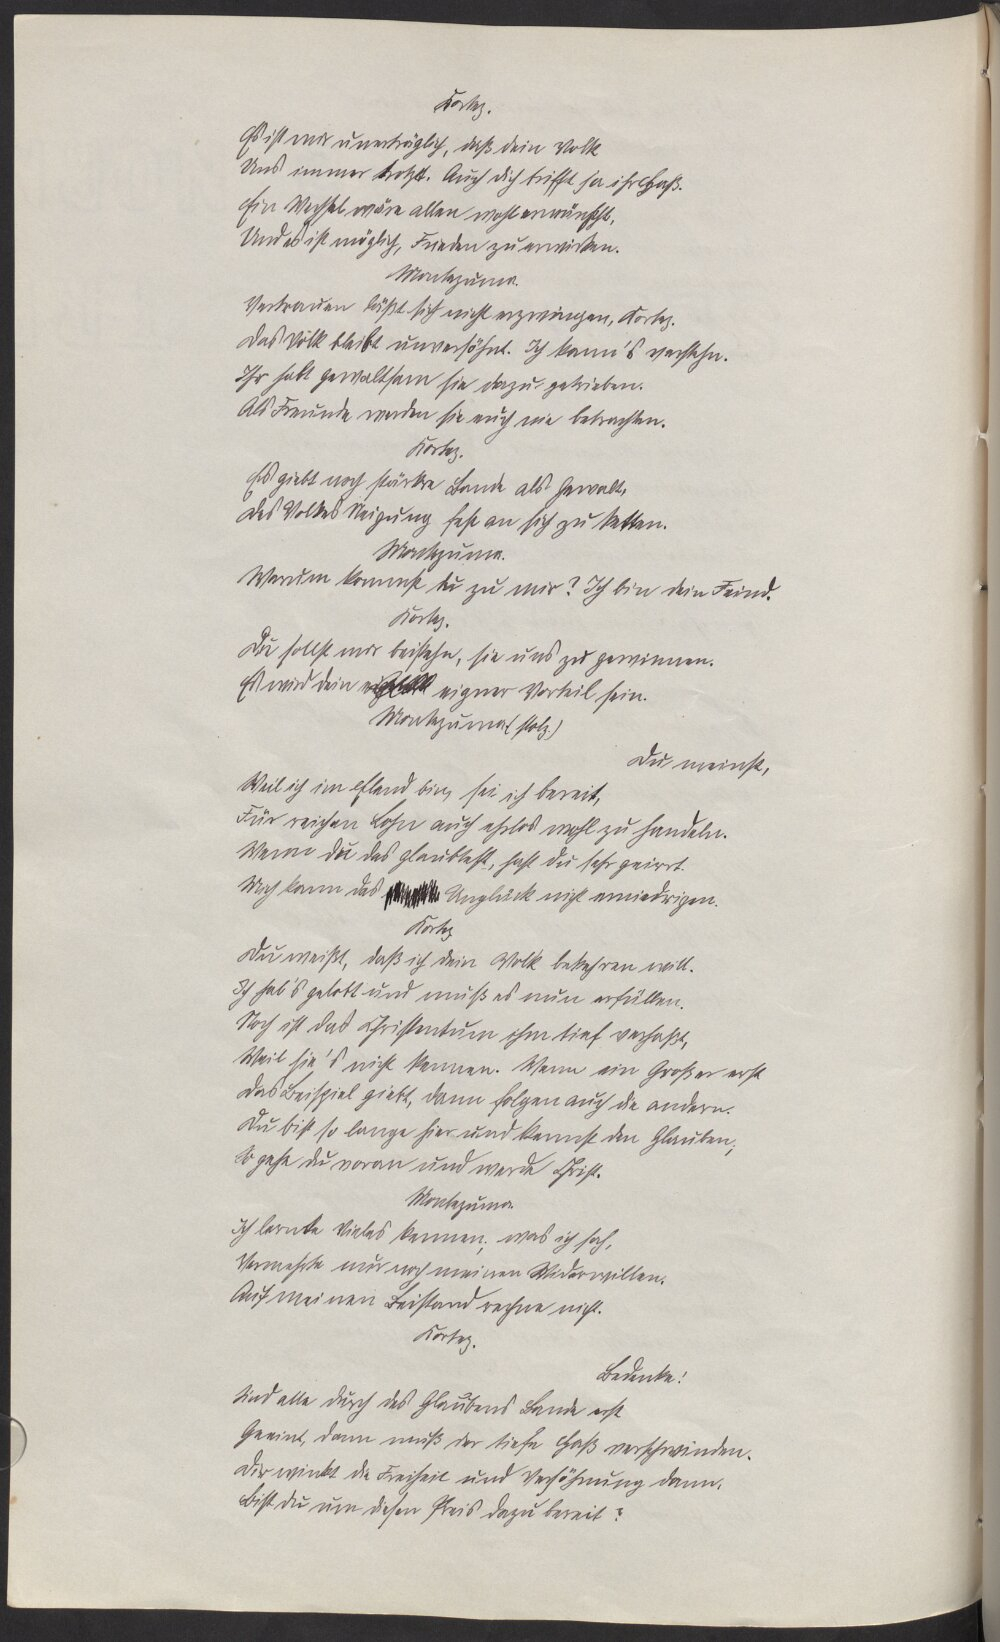 Kortez.
Es ist mir unerträglich, daß dein Volk
Uns immer trotzt. Auch dich trifft ja ihr Haß.
Ein Wechsel wäre allen wohl erwünscht,
Und es ist möglich, Frieden zu erwirken.
Montezuma.
Vertrauen läßt sich nicht erzwingen, Kortez.
Das Volk bleibt unversöhnt. Ich kann's verstehn.
Ihr habt gewaltsam sie dazu getrieben.
Als Freunde werden sie euch nie betrachten.
Kortez.
Es giebt noch stärkre Bande als Gewalt,
Des Volkes Neigung fest an sich zu ketten.
Montezuma.
Warum kommst du zu mir? Ich bin dein Feind.
Kortez.
Du sollst mir beistehn, sie uns zu gewinnen.
Es wird dein eigner Vorteil sein.
Montezuma (stolz.)
Du meinst,
Weil ich im Elend bin, sei ich bereit,
Für reichen Lohn auch ehrlos wohl zu handeln.
Wenn du das glaubtest, hast du sehr geirrt.
Mich kann das Unglück nicht erniedrigen.
Kortez
Du weißt, daß ich dein Volk bekehren will.
Ich hab's gelobt und muß es nun erfüllen.
Noch ist das Christentum ihm tief verhaßt,
Weil sie's nicht kennen. Wenn ein Großer erst
Das Beispiel giebt, dann folgen auch die andern.
Du bist so lange hier und kennst den Glauben;
So gehe du voran und werde Christ.
Montezuma.
Ich lernte Vieles kennen; was ich sah,
Vermehrte nur noch meinen Widerwillen.
Auf meinen Beistand rechne nicht.
Kortez.
Bedenke!
Sind alle durch des Glaubens Bande erst
Geeint, dann muß der tiefe Haß verschwinden.
Dir winkt die Freiheit und Versöhnung dann.
Bist du um diesen Preis dazu bereit?